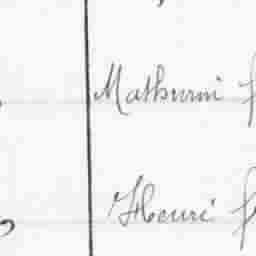 Mathurin f
Henri f